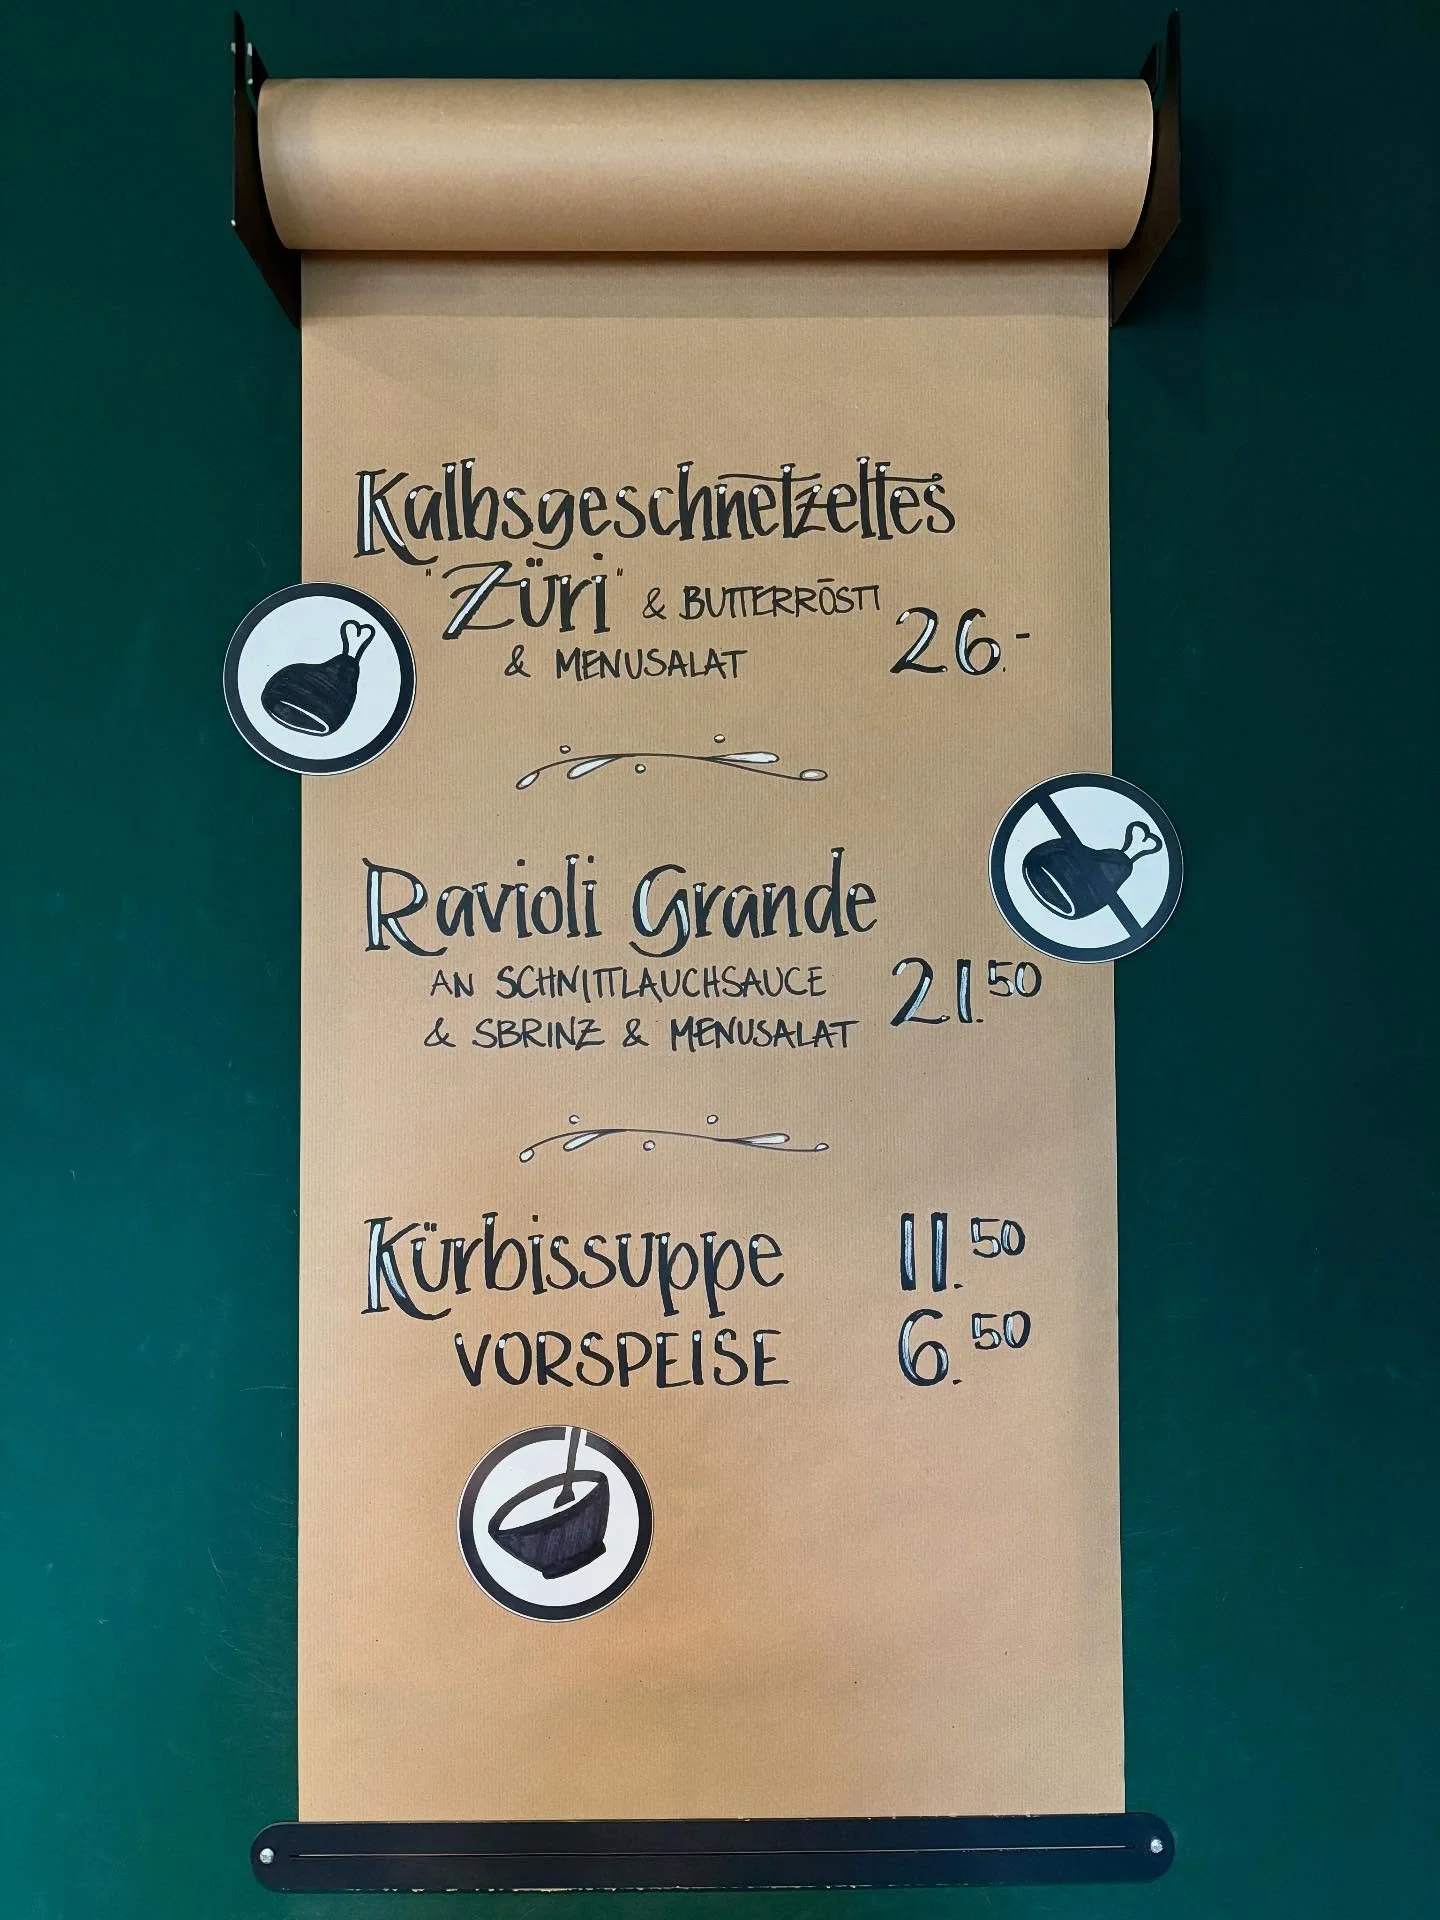 Kalbsgeschnetzeltes
"Züri" & BUTTERRÖSTI
& MENUSALAT 26.-
Ravioli Grande
AN SCHNITTLAUCHSAUCE 21.50
& SBRINZ & MENUSALAT
Kürbissuppe 11.50
VORSPEISE 6.50